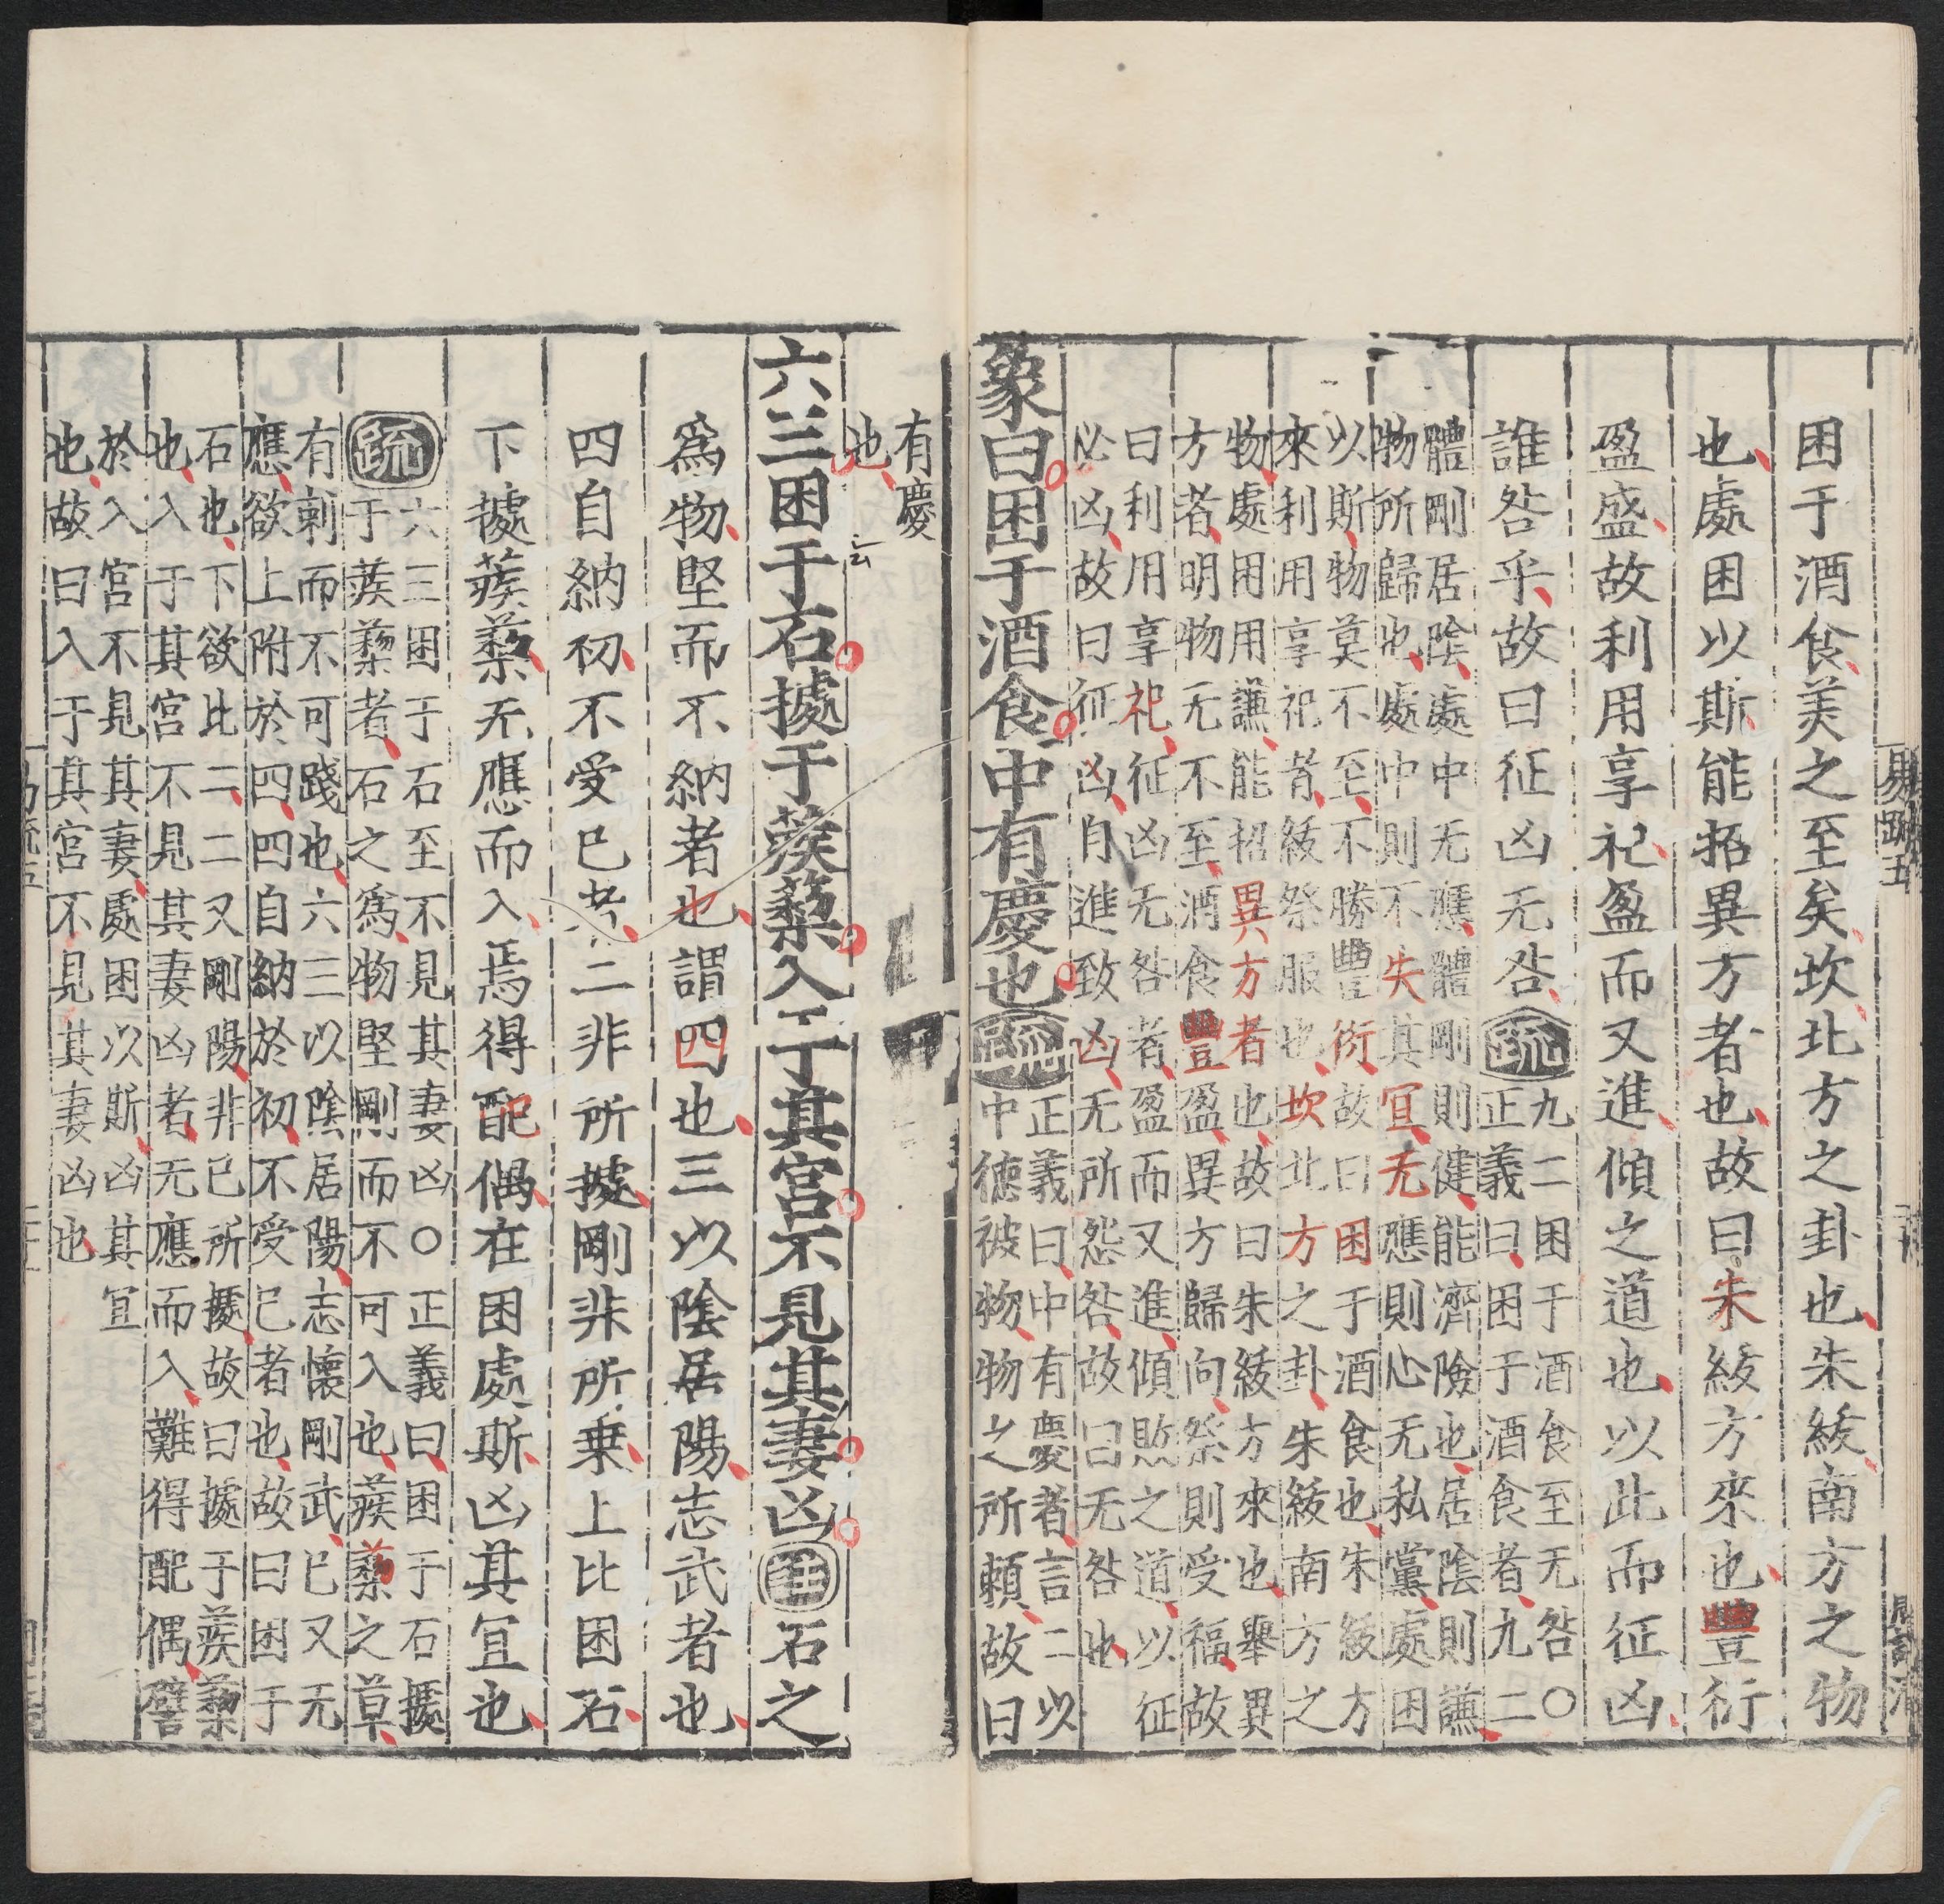 易疏五
困于酒食美之至矣坎北方之卦也朱紱南方之物
也處困以斯能招異方者也故曰朱紱方來也豐衍
盈盛故利用享祀盈而又進傾之道也以此而征凶
誰咎乎故曰征凶无咎疏九二困于酒食至无咎○
正義曰困于酒食者九二
體剛居陰處中无應體剛則健能濟險也居陰則謙
物所歸也處中則不失其宜无應則心无私黨處困
以斯物莫不至不勝豐衍故曰困于酒食也朱紱方
來利用享祀者紱祭服也坎北方之卦朱紱南方之
物處困用謙能招異方者也故曰朱紱方來也舉異
方者明物无不至酒食豐盈異方歸向祭則受福故
曰利用享祀征凶无咎者盈而又進傾敗之道以征
必凶故曰征凶自進致凶无所怨咎故曰无咎也
象曰困于酒食中有慶也疏正義曰中有慶者言二以
中德被物物之所賴故曰
有慶
也
六三困于石據于蒺蔾入于其宮不見其妻凶注石之
爲物堅而不納者也謂四也三以陰居陽志武者也
四自納初不受已者二非所據剛非所乗上比困石
下據蒺蔾无應而入焉得配偶在困處斯凶其宜也
疏六三困于石至不見其妻凶○正義曰困于石據
于蒺蔾者石之爲物堅剛而不可入也蒺蔾之草
有刺而不可踐也六三以陰居陽志懷剛武已又无
應欲上附於四四自納於初不受已者也故曰困于
石也下欲比二二又剛陽非已所據故曰據于蒺蔾
也入于其宮不見其妻凶者无應而入難得配偶譬
於入宮不見其妻處困以斯凶其宜
也故曰入于其宮不見其妻凶也